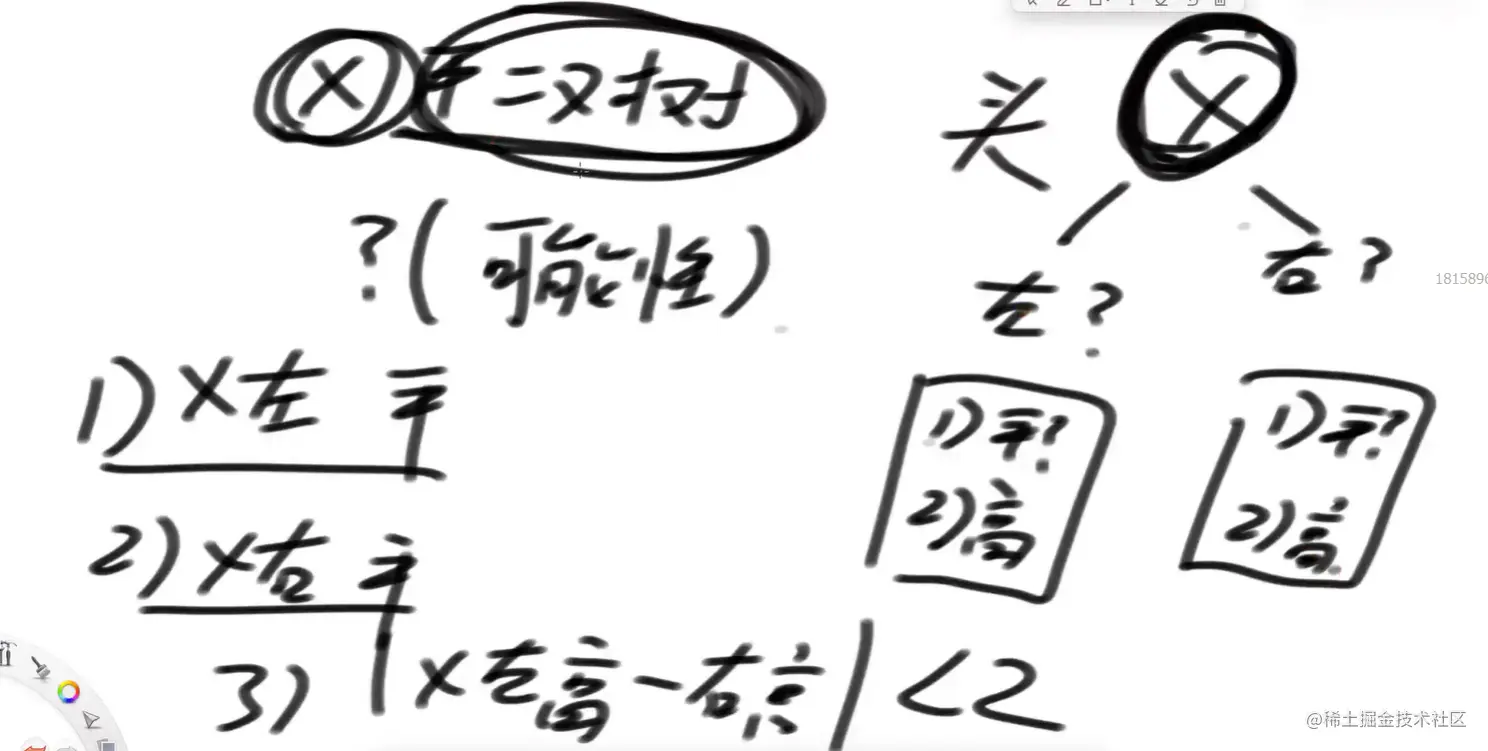 X 平二叉树
?(可能性)
1) X左 平
2) X右 平
3) |X左高-右高|<2
头 X
左? 右?
1)平?
2)高
1)平?
2)高
181589
@稀土掘金技术社区